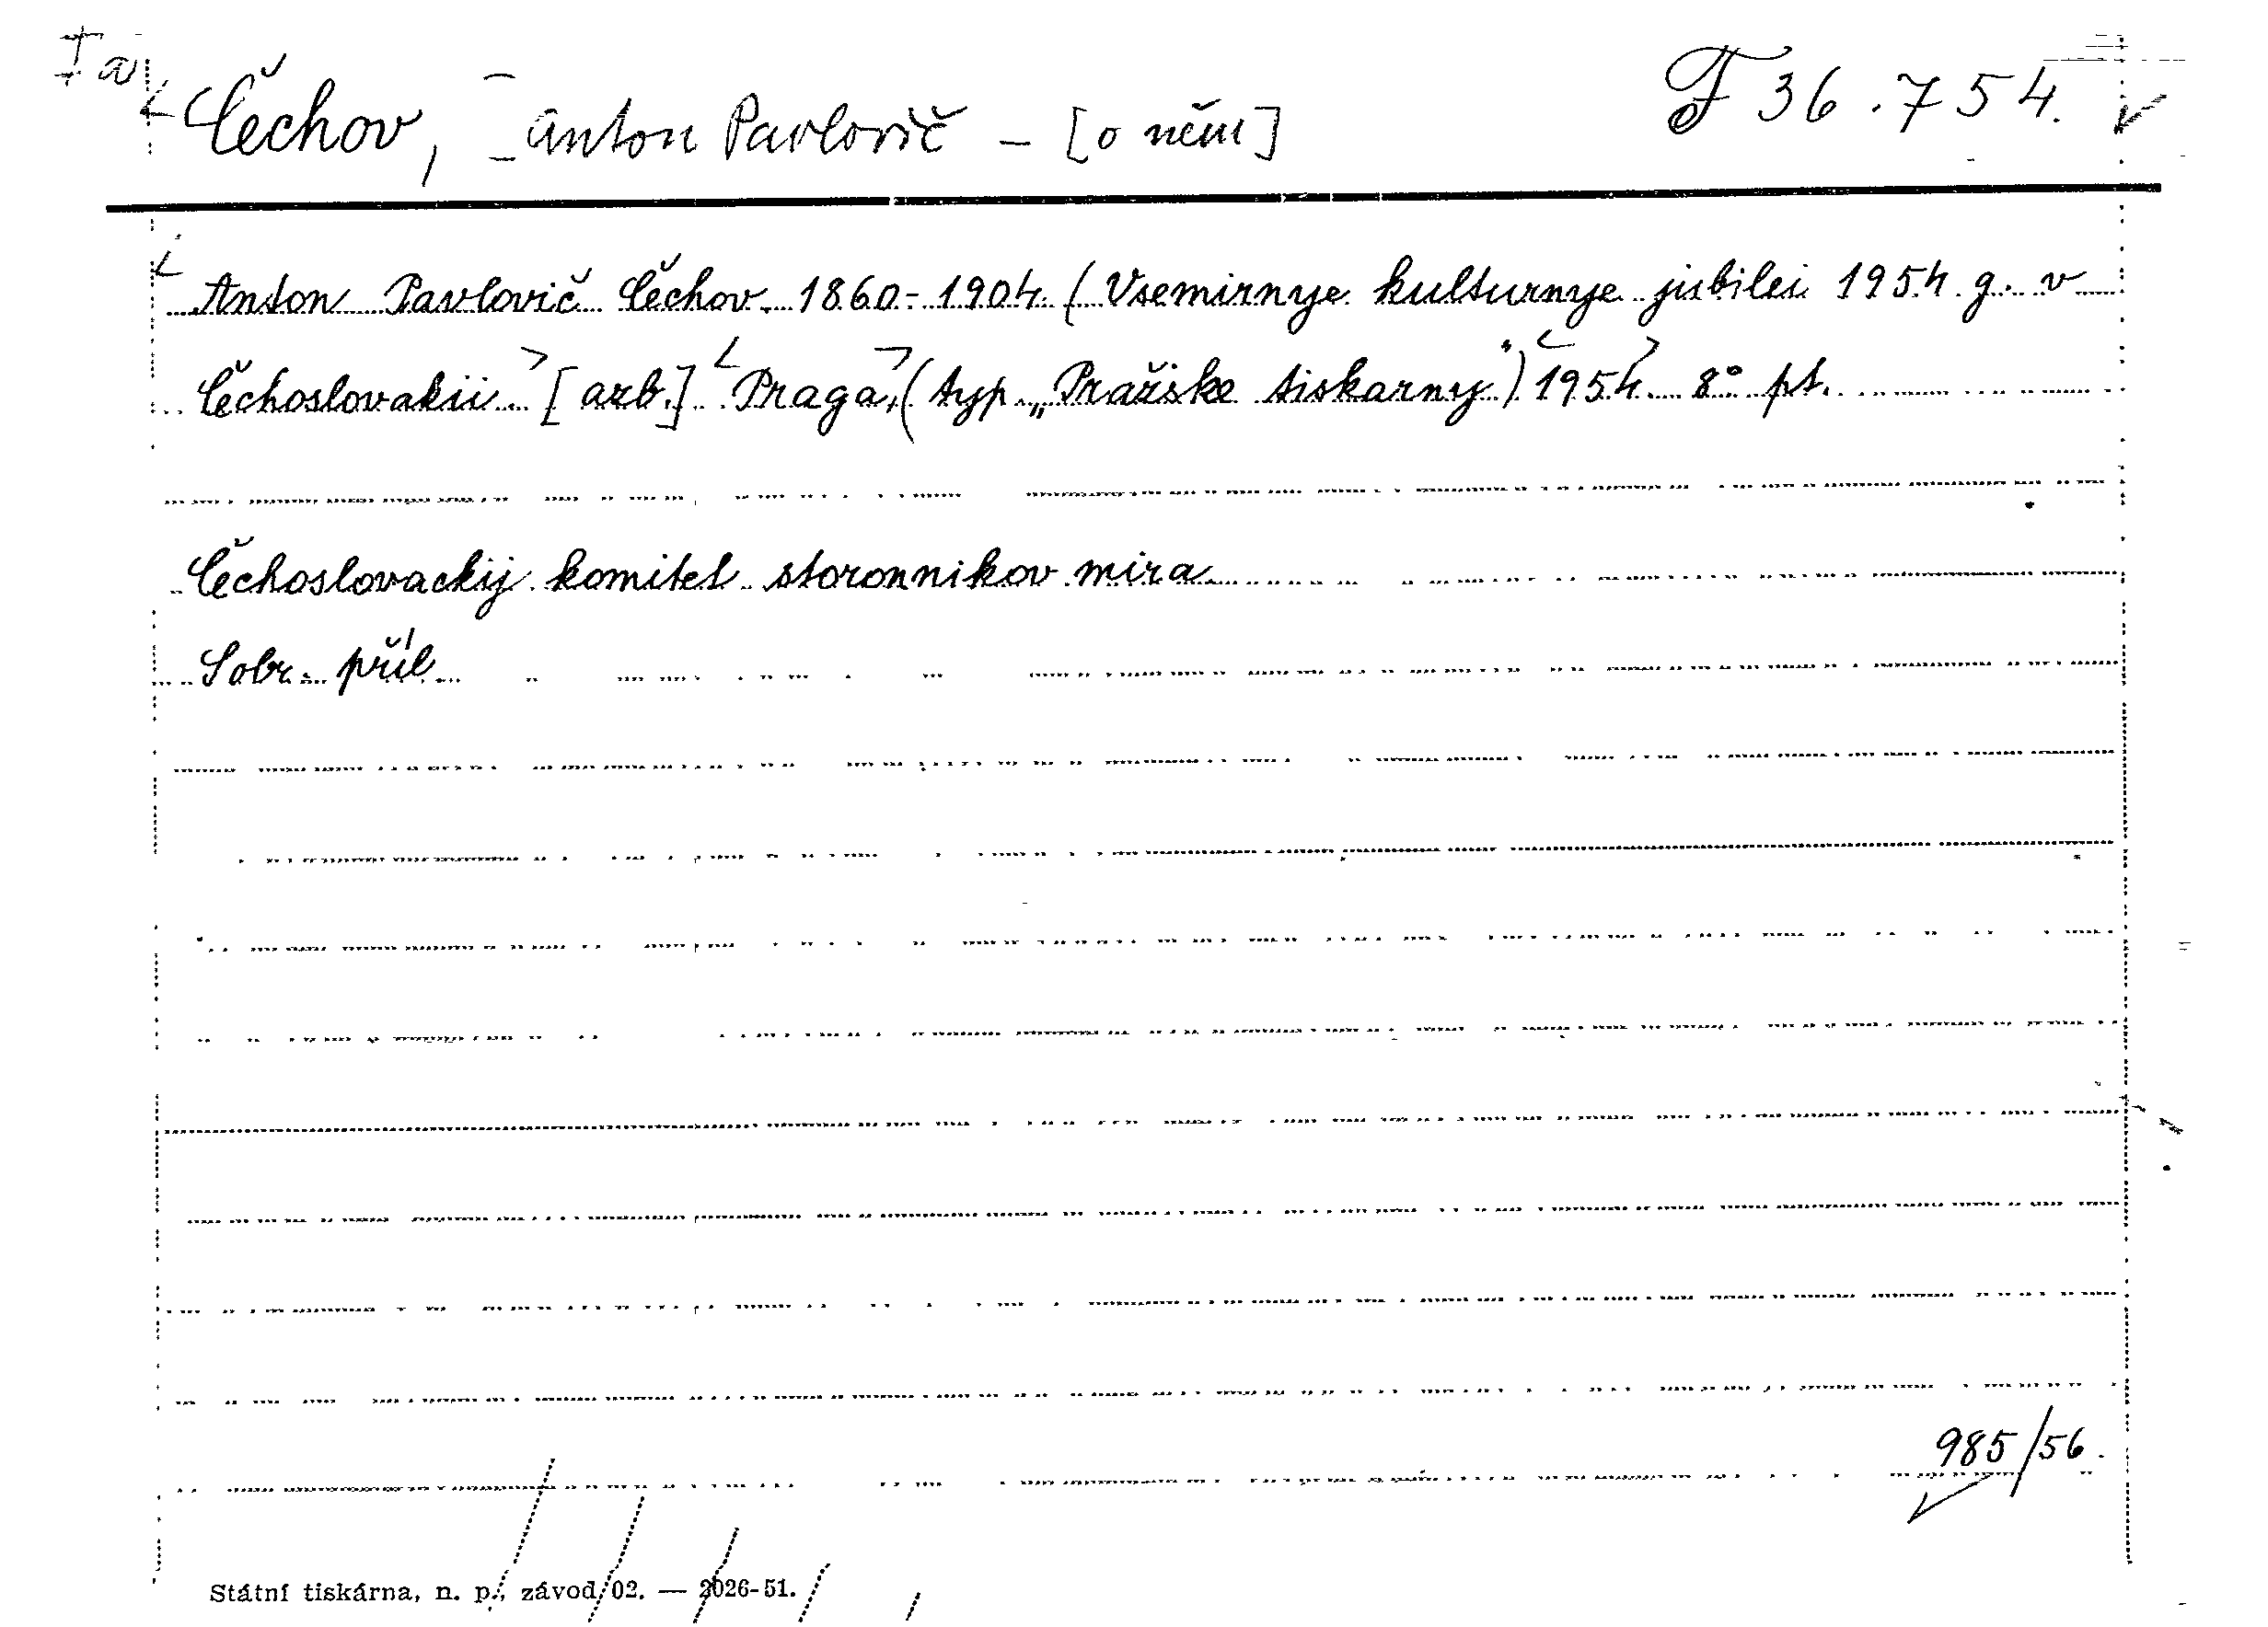 I a
Čechov, Anton Pavlovič – [o něm] F 36.754.
Anton Pavlovič Čechov. 1860–1904. (Vsemirnye kulturnye jubilei 1954 g. v
Čechoslovakii. [azb.] Praga, (typ. „Pražske tiskarny") 1954. 8° pt.
Čechoslovackij komitet storonnikov mira
Sobr. příl
985/56.
Státní tiskárna, n. p., závod 02. — 2026-51.